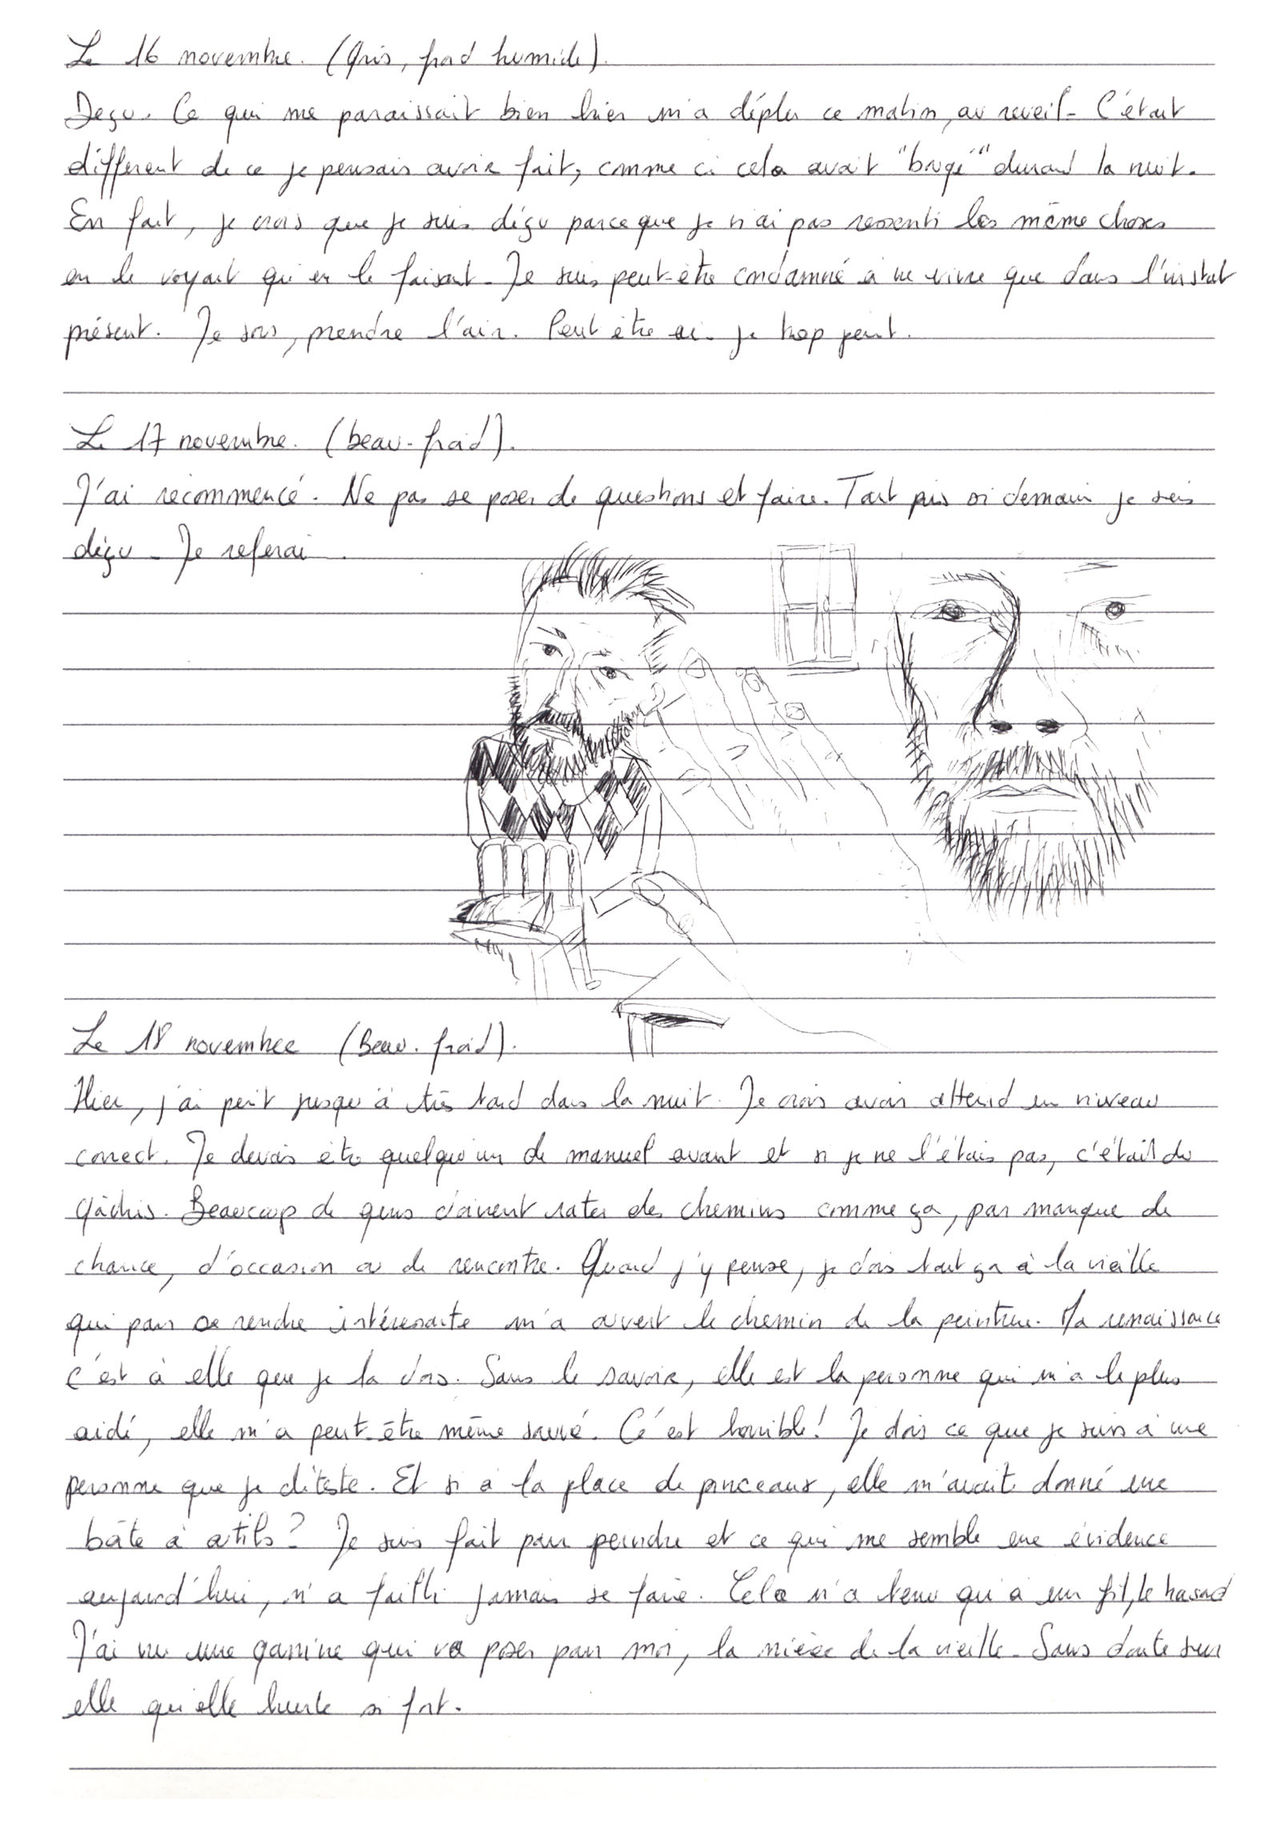 Le 16 novembre. (Gris, froid humide).
Deçu. Ce qui me paraissait bien hier m'a déplu ce matin, au reveil. C'était
différent de ce je pensais avoir fait, comme ci cela avait "bougé" durant la nuit.
En fait, je crois que je suis déçu parce que je n'ai pas ressenti les même choses
en le voyant qu'en le faisant. Je suis peut-être condamné à ne vivre que dans l'instant
présent. Je sors, prendre l'air. Peut être ai-je trop peint.
Le 17 novembre. (beau-froid).
J'ai recommencé. Ne pas se poser de questions et faire. Tant pis si demain je suis
déçu. Je referai.
Le 18 novembre (Beau. froid).
Hier, j'ai peint jusqu'à très tard dans la nuit. Je crois avoir atteind un niveau
correct. Je devais être quelqu'un de manuel avant et si je ne l'étais pas, c'était du
gâchis. Beaucoup de gens doivent rater des chemins comme ça, par manque de
chance, d'occasion ou de rencontre. Quand j'y pense, je dois tout ça à la vieille
qui pour se rendre intéressante m'a ouvert le chemin de la peinture. Ma renaissance
c'est à elle que je la dois. Sans le savoir, elle est la personne qui m'a le plus
aidé, elle m'a peut-être même sauvé. C'est horrible! Je dois ce que je suis à une
personne que je déteste. Et si à la place de pinceaux, elle m'avait donné une
boîte à outils? Je suis fait pour peindre et ce qui me semble une évidence
aujourd'hui, n'a failli jamais se faire. Cela n'a tenu qu'à un fil, le hasard
J'ai vu une gamine qui va poser pour moi, la nièce de la vieille. Sans doute sur
elle qu'elle hurle si fort.